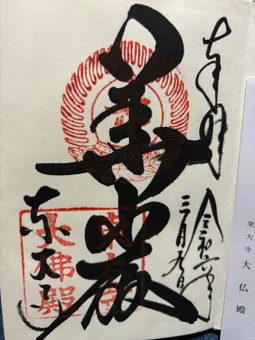 奉拝
令和六年
三月九日
華嚴
東大寺
東大寺
大佛殿
東大寺 大仏殿